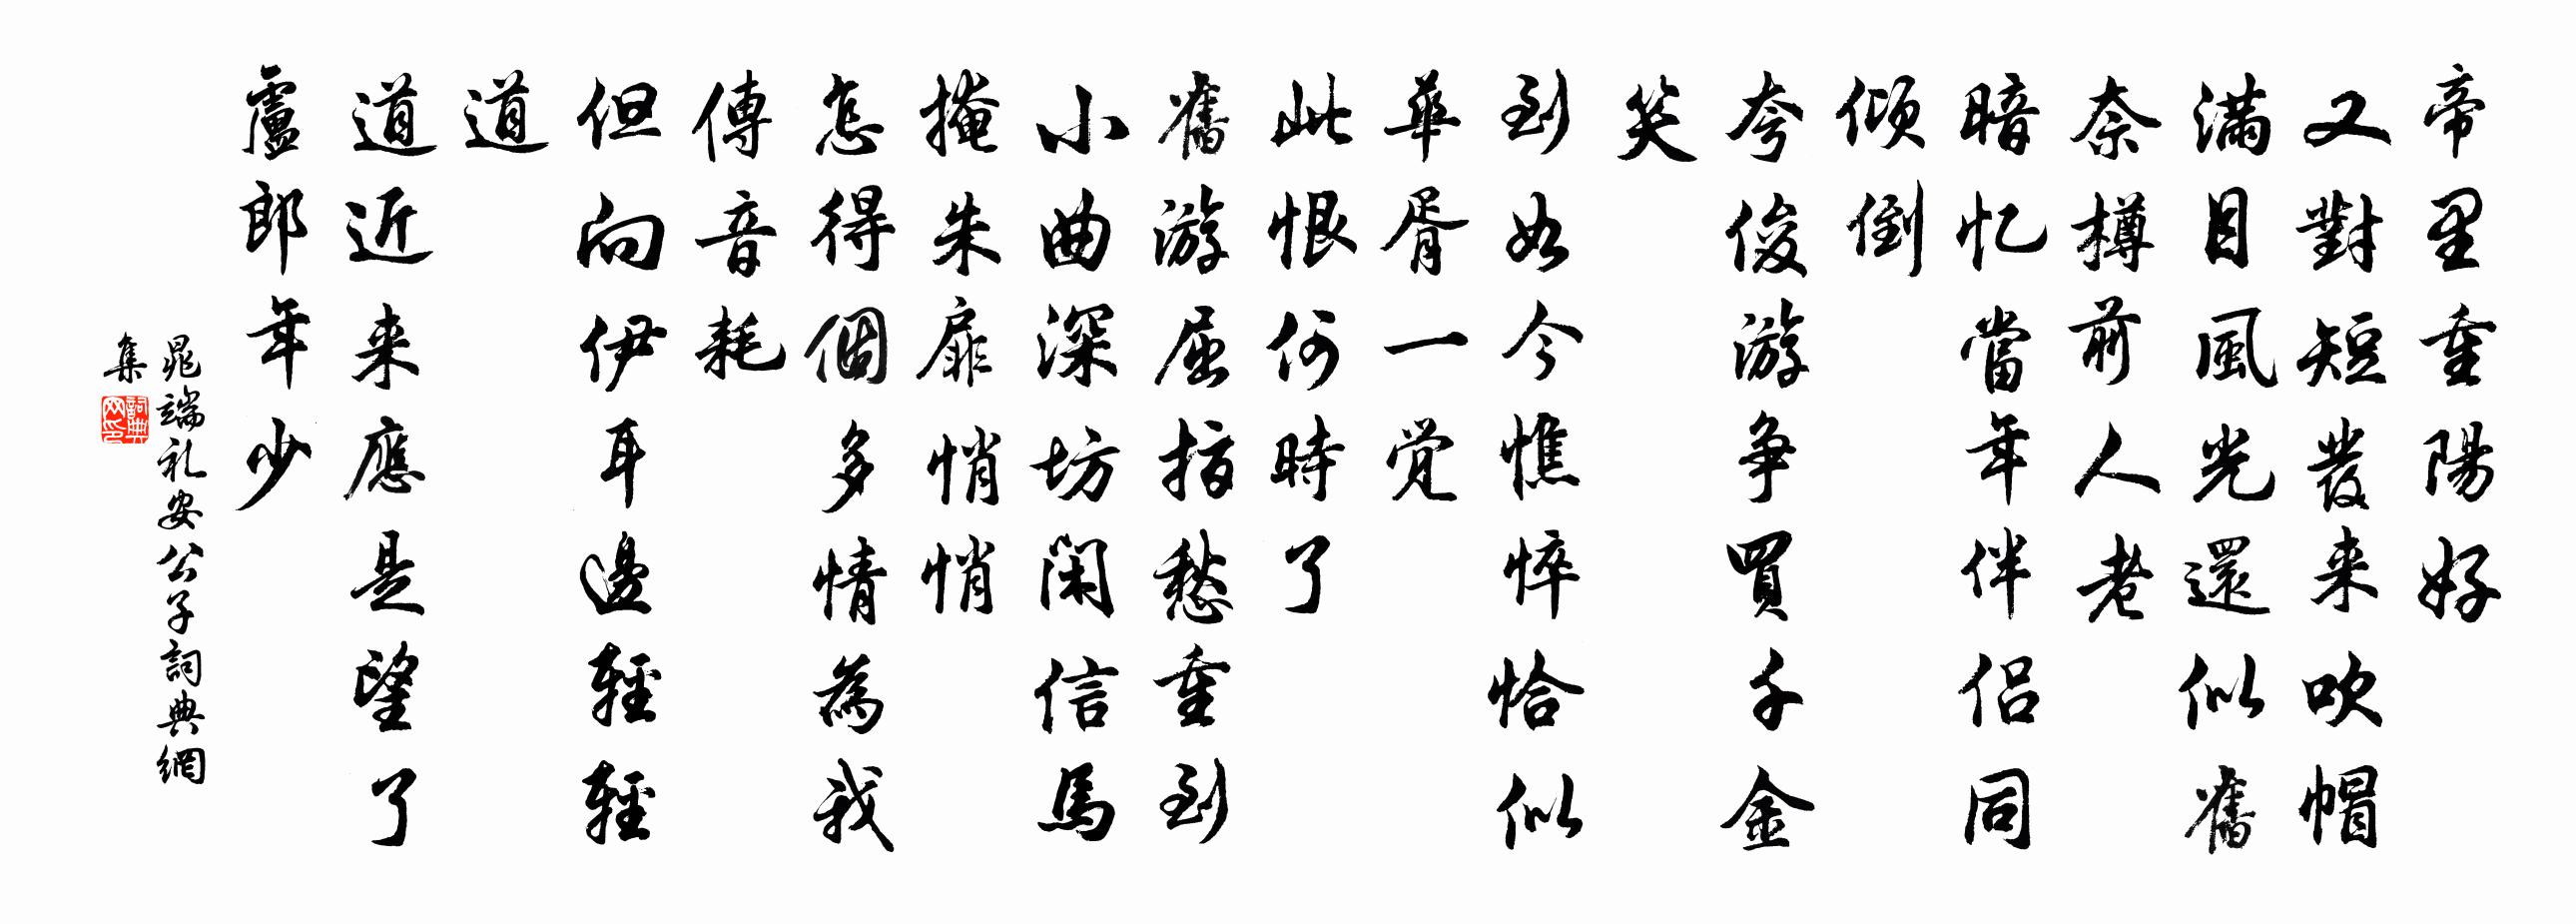 帝里重陽好
又對短發来吹帽
滿目風光還似舊
奈樽前人老
暗忆當年伴侣同
傾倒
夸俊游争買千金
笑
到如今憔悴恰似
華胥一觉
此恨何時了
舊游屈指愁重到
小曲深坊閑信馬
掩朱扉悄悄
怎得個多情為我
傳音耗
但向伊耳邊輕輕
道
道近来應是望了
盧郎年少
晁端礼安公子詞典網
集
詞典
网印